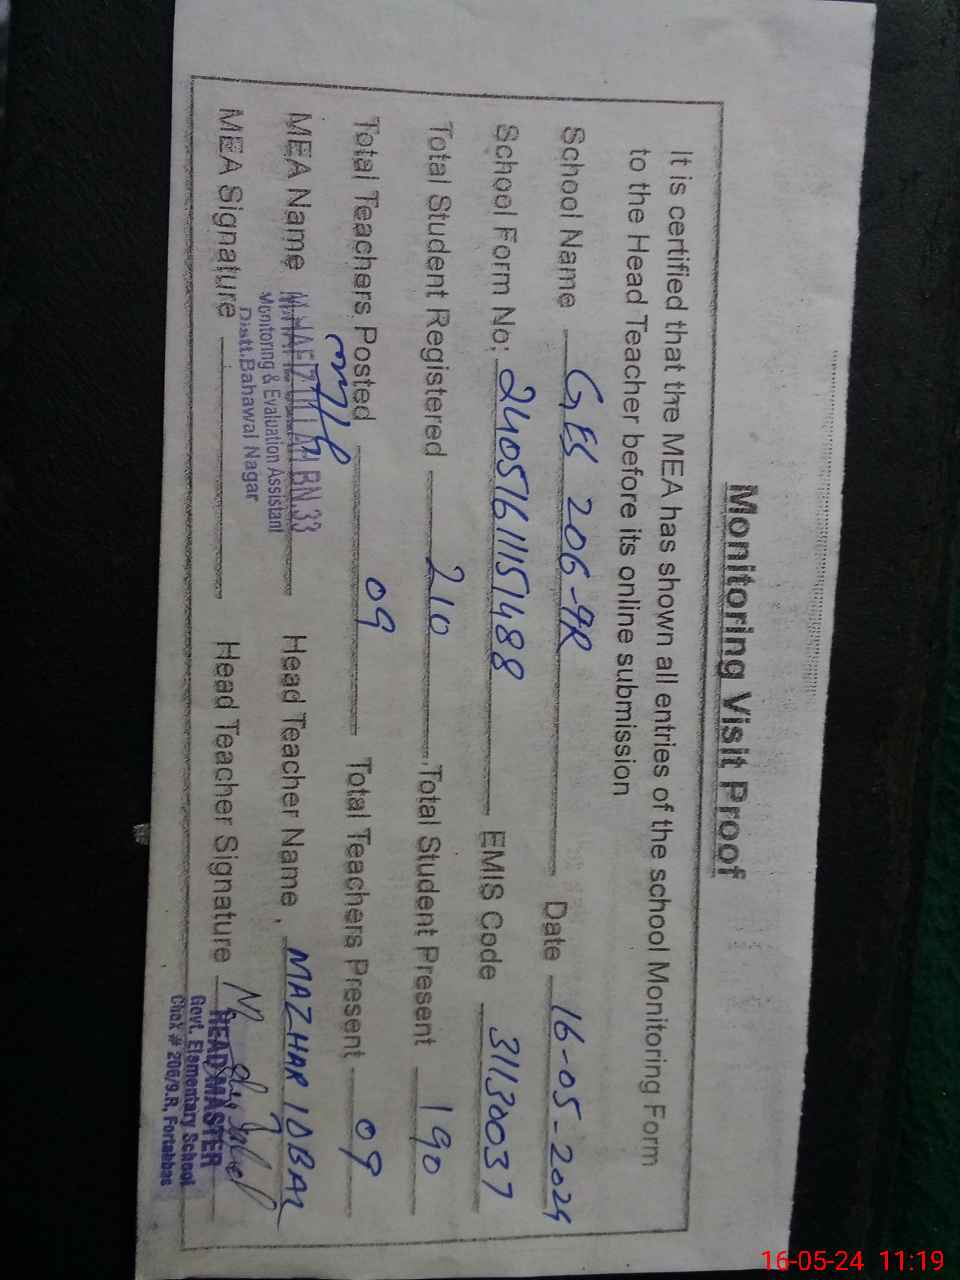 Monitoring Visit Proof
It is certified that the MEA has shown all entries of the school Monitoring Form
to the Head Teacher before its online submission
School Name GES 206-9R Date 16-05-2024
School Form No: 24051611151488 EMIS Code 31130037
Total Student Registered 210 Total Student Present 190
Total Teachers Posted 09 Total Teachers Present 09
MEA Name BN.33 Head Teacher Name, MAZHAR IQBAL
Monitoring & Evaluation Assistant
Distt.Bahawal Nagar
MEA Signature Head Teacher Signature
HEAD MASTER
Govt. Elementary School
Chak # 206/9.R, Fortabbas
16-05-24 11:19